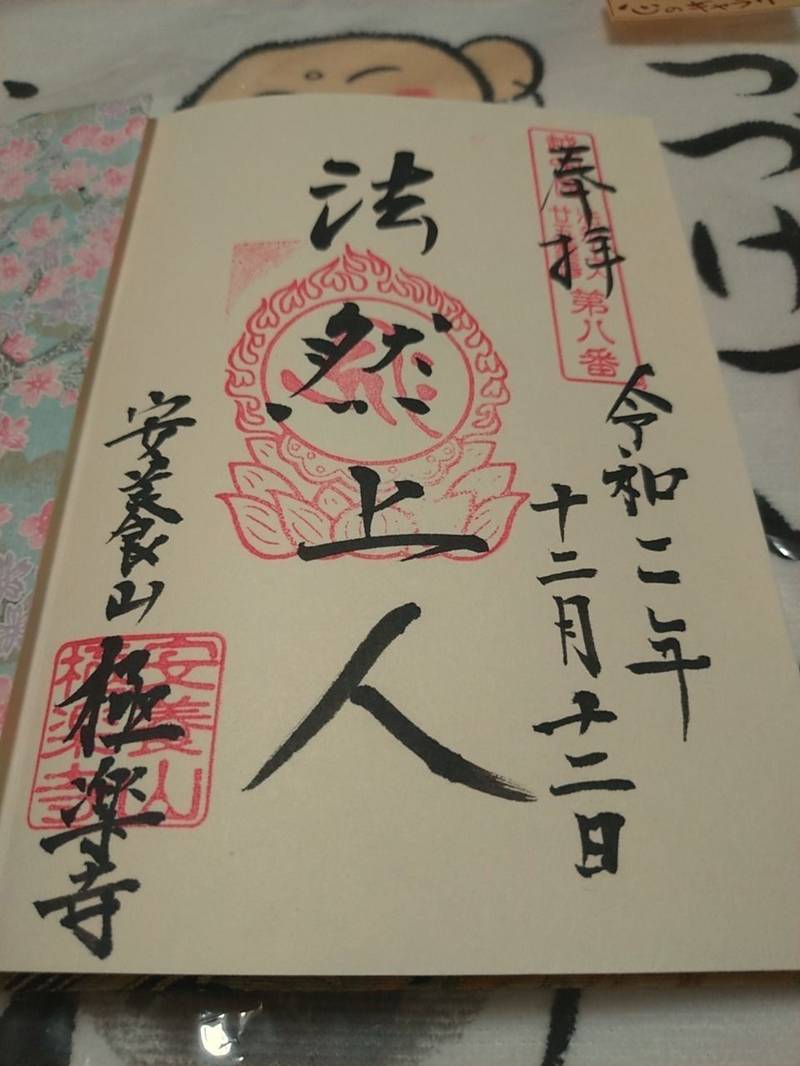 奉拝
第八番
令和二年
十二月十二日
法然上人
安養山
極楽寺
安養山
極楽寺
つづけ